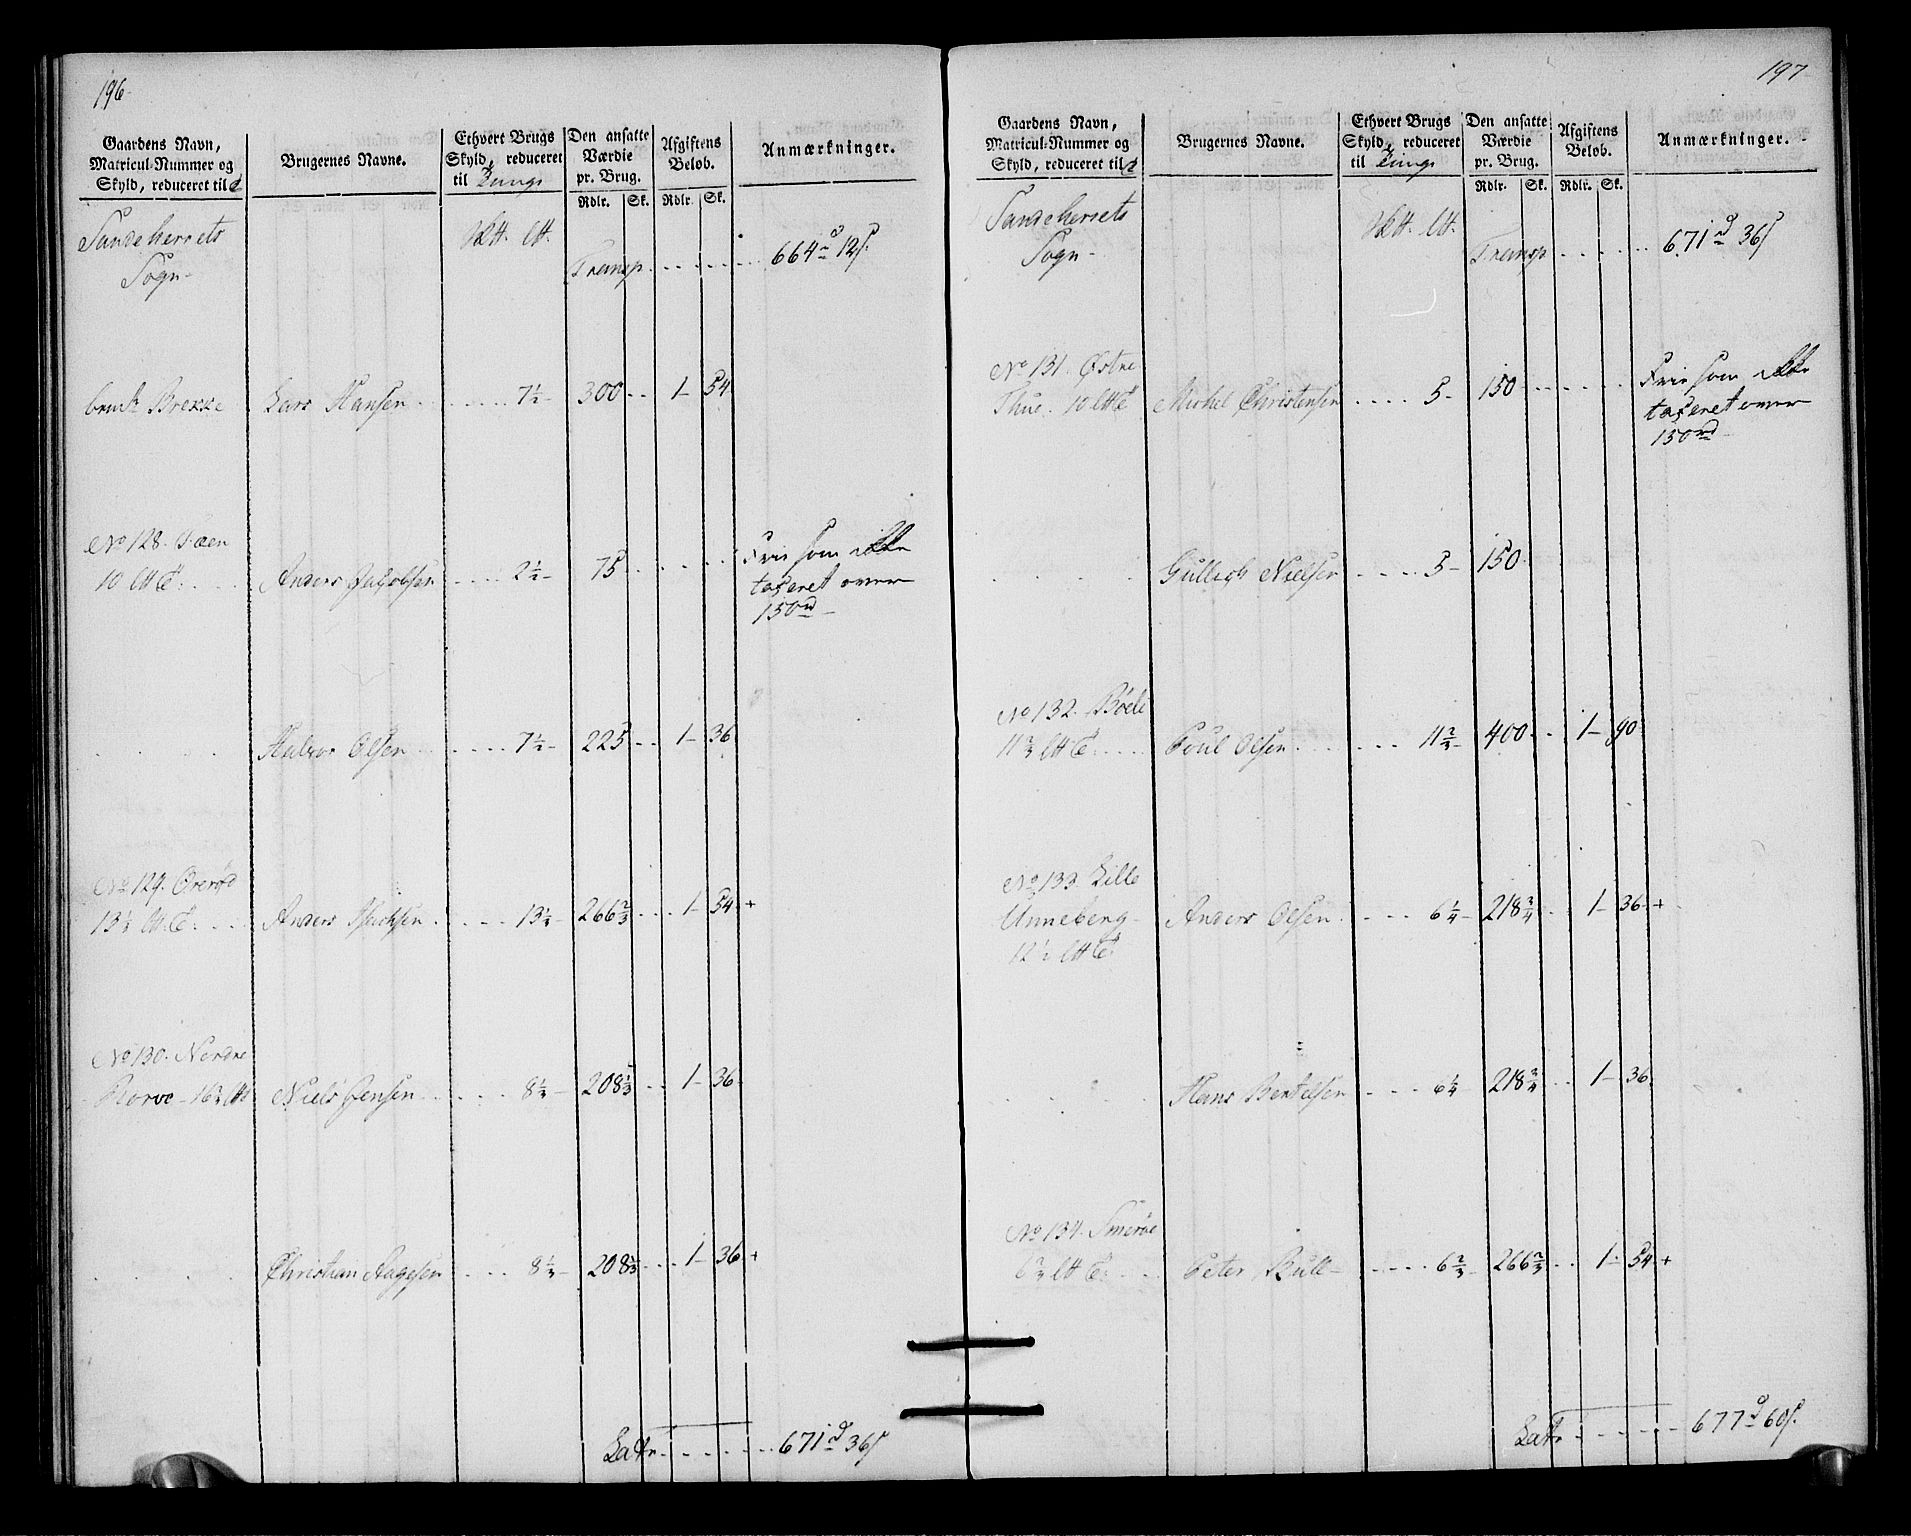 196
Gaardens Navn,
Matricul-Nummer og
Skyld, reduceret til
Brugernes Navne.
Ethvert Brugs
Skyld, reduceret
til Tunge
Den ansatte
Værdie
pr. Brug.
Rdlr. Sk.
Afgiftens
Beløb.
Rdlr. Sk.
Anmærkninger.
Sandeherrets
Sogn
Transp. 664 d 12 s.
Brekke Lars Hansen 7½ 300 1 54
No 128. Faen
10 Anders Jacobsen 2½ 75 Frie som ikke
taxeret over
150 rd
Halvor Olsen 7½ 225 1 36
No 129. Orerød
13⅓ Anders Isachsen 13⅓ 266⅔ 1 54 +
No 130. Nordre
Rorve 16⅔ Niels Jensen 8⅓ 208⅓ 1 36
Christian Aagesen 8⅓ 208⅓ 1 36 +
Latr. 671 d 36 s
197
Gaardens Navn,
Matricul-Nummer og
Skyld, reduceret til
Brugernes Navne.
Ethvert Brugs
Skyld, reduceret
til Tunge
Den ansatte
Værdie
pr. Brug.
Rdlr. Sk.
Afgiftens
Beløb.
Rdlr. Sk.
Anmærkninger.
Sandeherrets
Sogn
Transp 671 d 36 s
No 131. Østre
Thue. 10 Michel Christensen 5 150 Frie som ikke
taxeret over
150 rd
Gullich Nielsen 5 150
No 132. Bøele
11⅔ Poul Olsen 11⅔ 400 1 90
No 133. Lille
Unneberg
12½
Anders Olsen 6¼ 218¾ 1 36 +
Hans Bertelsen 6¼ 218¾ 1 36
No 134. Smerøe
6⅔ Peter Bull 6⅔ 266⅔ 1 54 +
Latr. 677 d 60 s.